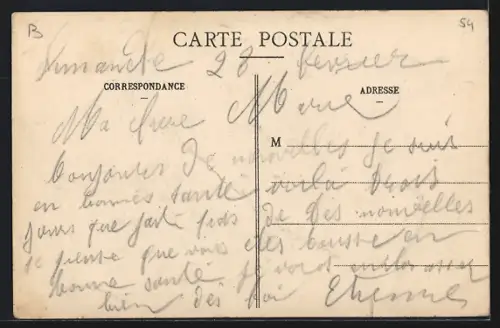 B
54
CARTE POSTALE
Dimanche 28 fevrier
CORRESPONDANCE
ADRESSE
Ma chere Marie
M
toujours de nouvelles je suis
en bonne santé voilà trois
jours que fait pas de des nouvelles
je pense que vous êtes tousse en
bonne santé je vois
bien des foi Etienne